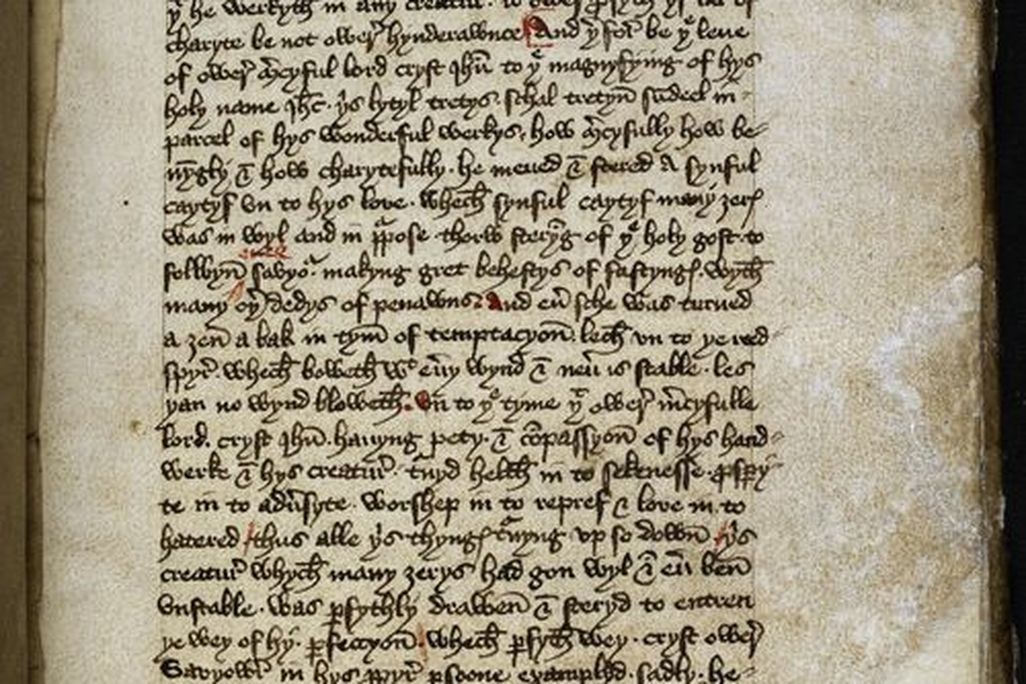 þͭ he werkyth in any creatur. to ower ꝓfyth yf lak of
charyte be not ower hynderawnce And þͤrfor be þͤ leue
of ower mͨcyful lord cryst ihū to þͤ magnyfying of hys
holy name ihc̄. þis lytyl tretys. schal tretyn sūdeel in
parcel of hys wonderful werkys. how mͨcyfully how be-
nyngly & how charytefully. he meued & stered A synful
caytyf vn to hys loue. whech̄ synful caytyf many ȝerꝭ
was in wyl and in pͣpose thorw steryḡ of þͤ holy gost. to
folwyn̄ oure
savyoͬ. makyng gret behestys of fastyngꝭ. wyth̄
many oþer dedys of penawns. And eū sche was turned
a ȝen̄ a bak in tym̄ of temptacyon̄. lech̄ vn to þe reed-
spyr̄. whech̄ boweth wͭ eūy wynd & neū is stable. les
þan no wynd bloweth̄. Vn to þͤ tyme þͭ ower m̄cyfulle
lord. cryst ihū. hauyng pety. & cōpassyon̄ of hys hand-
werke & hys creatur̄. t̄nyd helth̄ in to sekenesse. ꝓspry-
te in to adūsyte. worshep in to repref & loue in to
hatered thus alle þis thyngꝭ t̄nyng vp so down̄ þis
creatur̄ whych̄ many ȝerys had gon wyl & eū ben̄
vnstable. was ꝑfythly drawen̄ & steryd to entren
þe wey of hy. ꝑfeccyon̄. whech̄ ꝑfyth wey. cryst ower
Savyowr̄ in hys ꝓpyr̄ ꝑsoone examplyd. sadly. he-